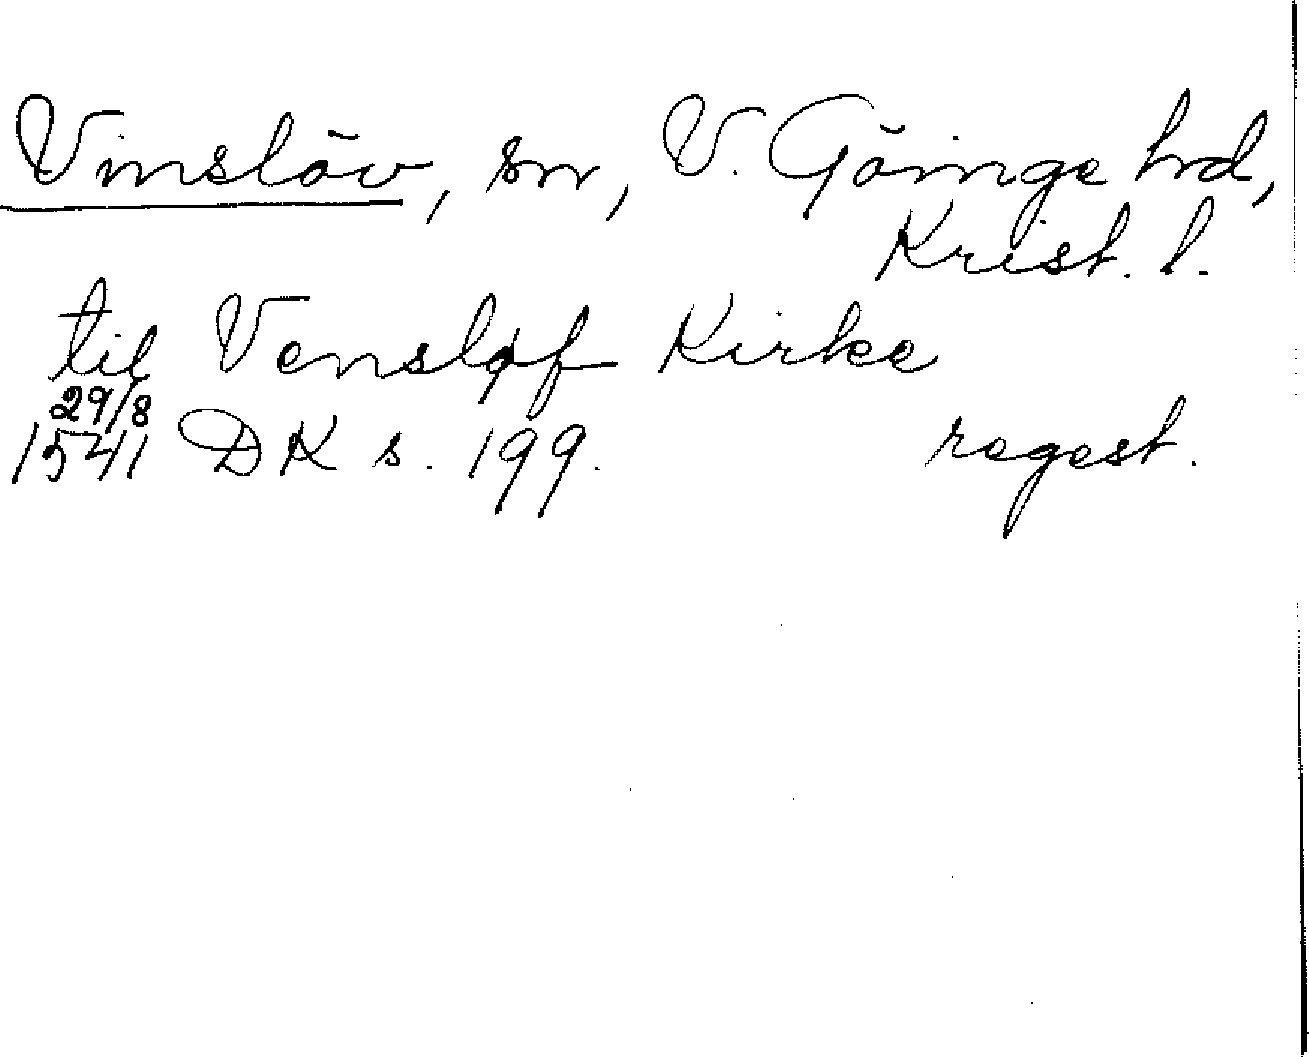 Vinslöv, sn, V. Göinge hrd,
Krist. l.
til Vensløf Kirke
29/8
1541 DK s. 199. regest.